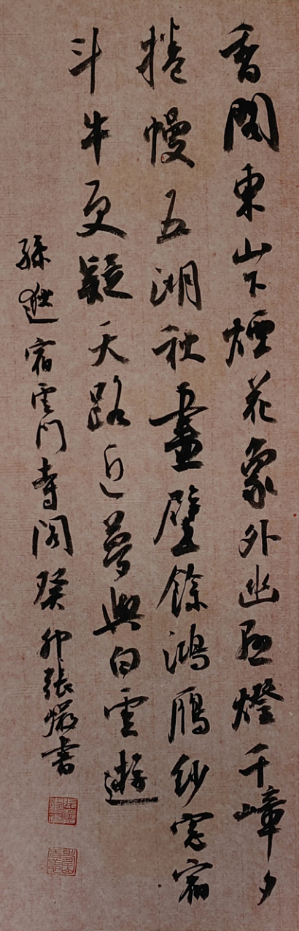 香閣東山下煙花象外幽懸燈千嶂夕
捲幔五湖秋畫壁餘鴻雁紗窗宿
斗牛更疑天路近夢與白雲遊
孫逖宿雲門寺閣癸卯張書